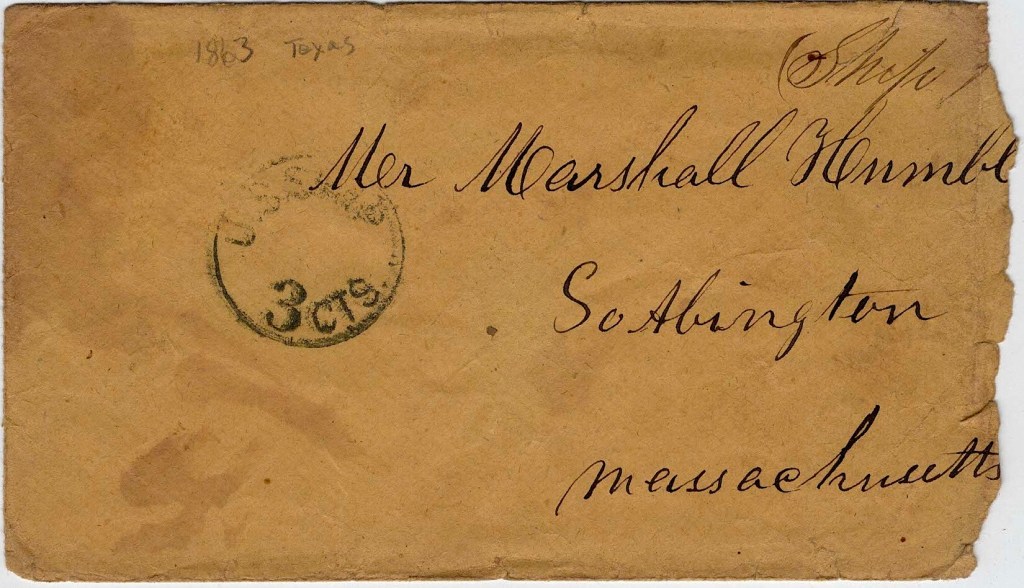 1863 Texas
(Ship)
Mer Marshall Humbl
U.S. SHIP
3 CTS.
So Abington
Massachusetts